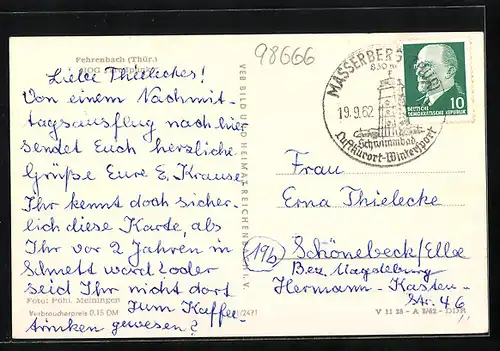 Fehrenbach (Thür.)
98666
Liebe Thieleckes!
Von einem Nachmit-
tagsausflug nach hier
sendet Euch herzliche
Grüße Eure E. Krause
Ihr kennt doch sicher-
lich diese Karte, als
Ihr vor 2 Jahren in
Schmett ward? oder
seid Ihr nicht dort
zum Kaffee-
trinken gewesen?
Foto: Pöhl, Meiningen
Verbraucherpreis 0,15 DM
VEB BILD UND HEIMAT REICHENBACH I. V.
MASSERBERG
830 m
19.9.62
Schwimmbad
Luftkurort-Wintersport
DEUTSCHE
DEMOKRATISCHE REPUBLIK
10
Frau
Erna Thielecke
19b
Schönebeck/Elbe
Bez. Magdeburg
Hermann-Kasten-
Str. 46
V 11 28 - A 2/62 - DDR